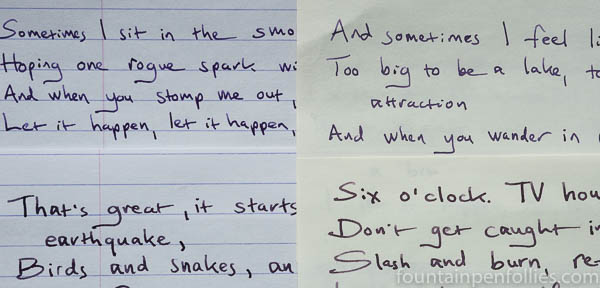 Sometimes I sit in the smo
Hoping one rogue spark wi
And when you stomp me out,
Let it happen, let it happen,
And sometimes I feel li
Too big to be a lake, to
attraction
And when you wander in
That's great, it starts
earthquake,
Birds and snakes, an
Six o'clock. TV hou
Don't get caught in
Slash and burn, re-
fountainpenfollies.com